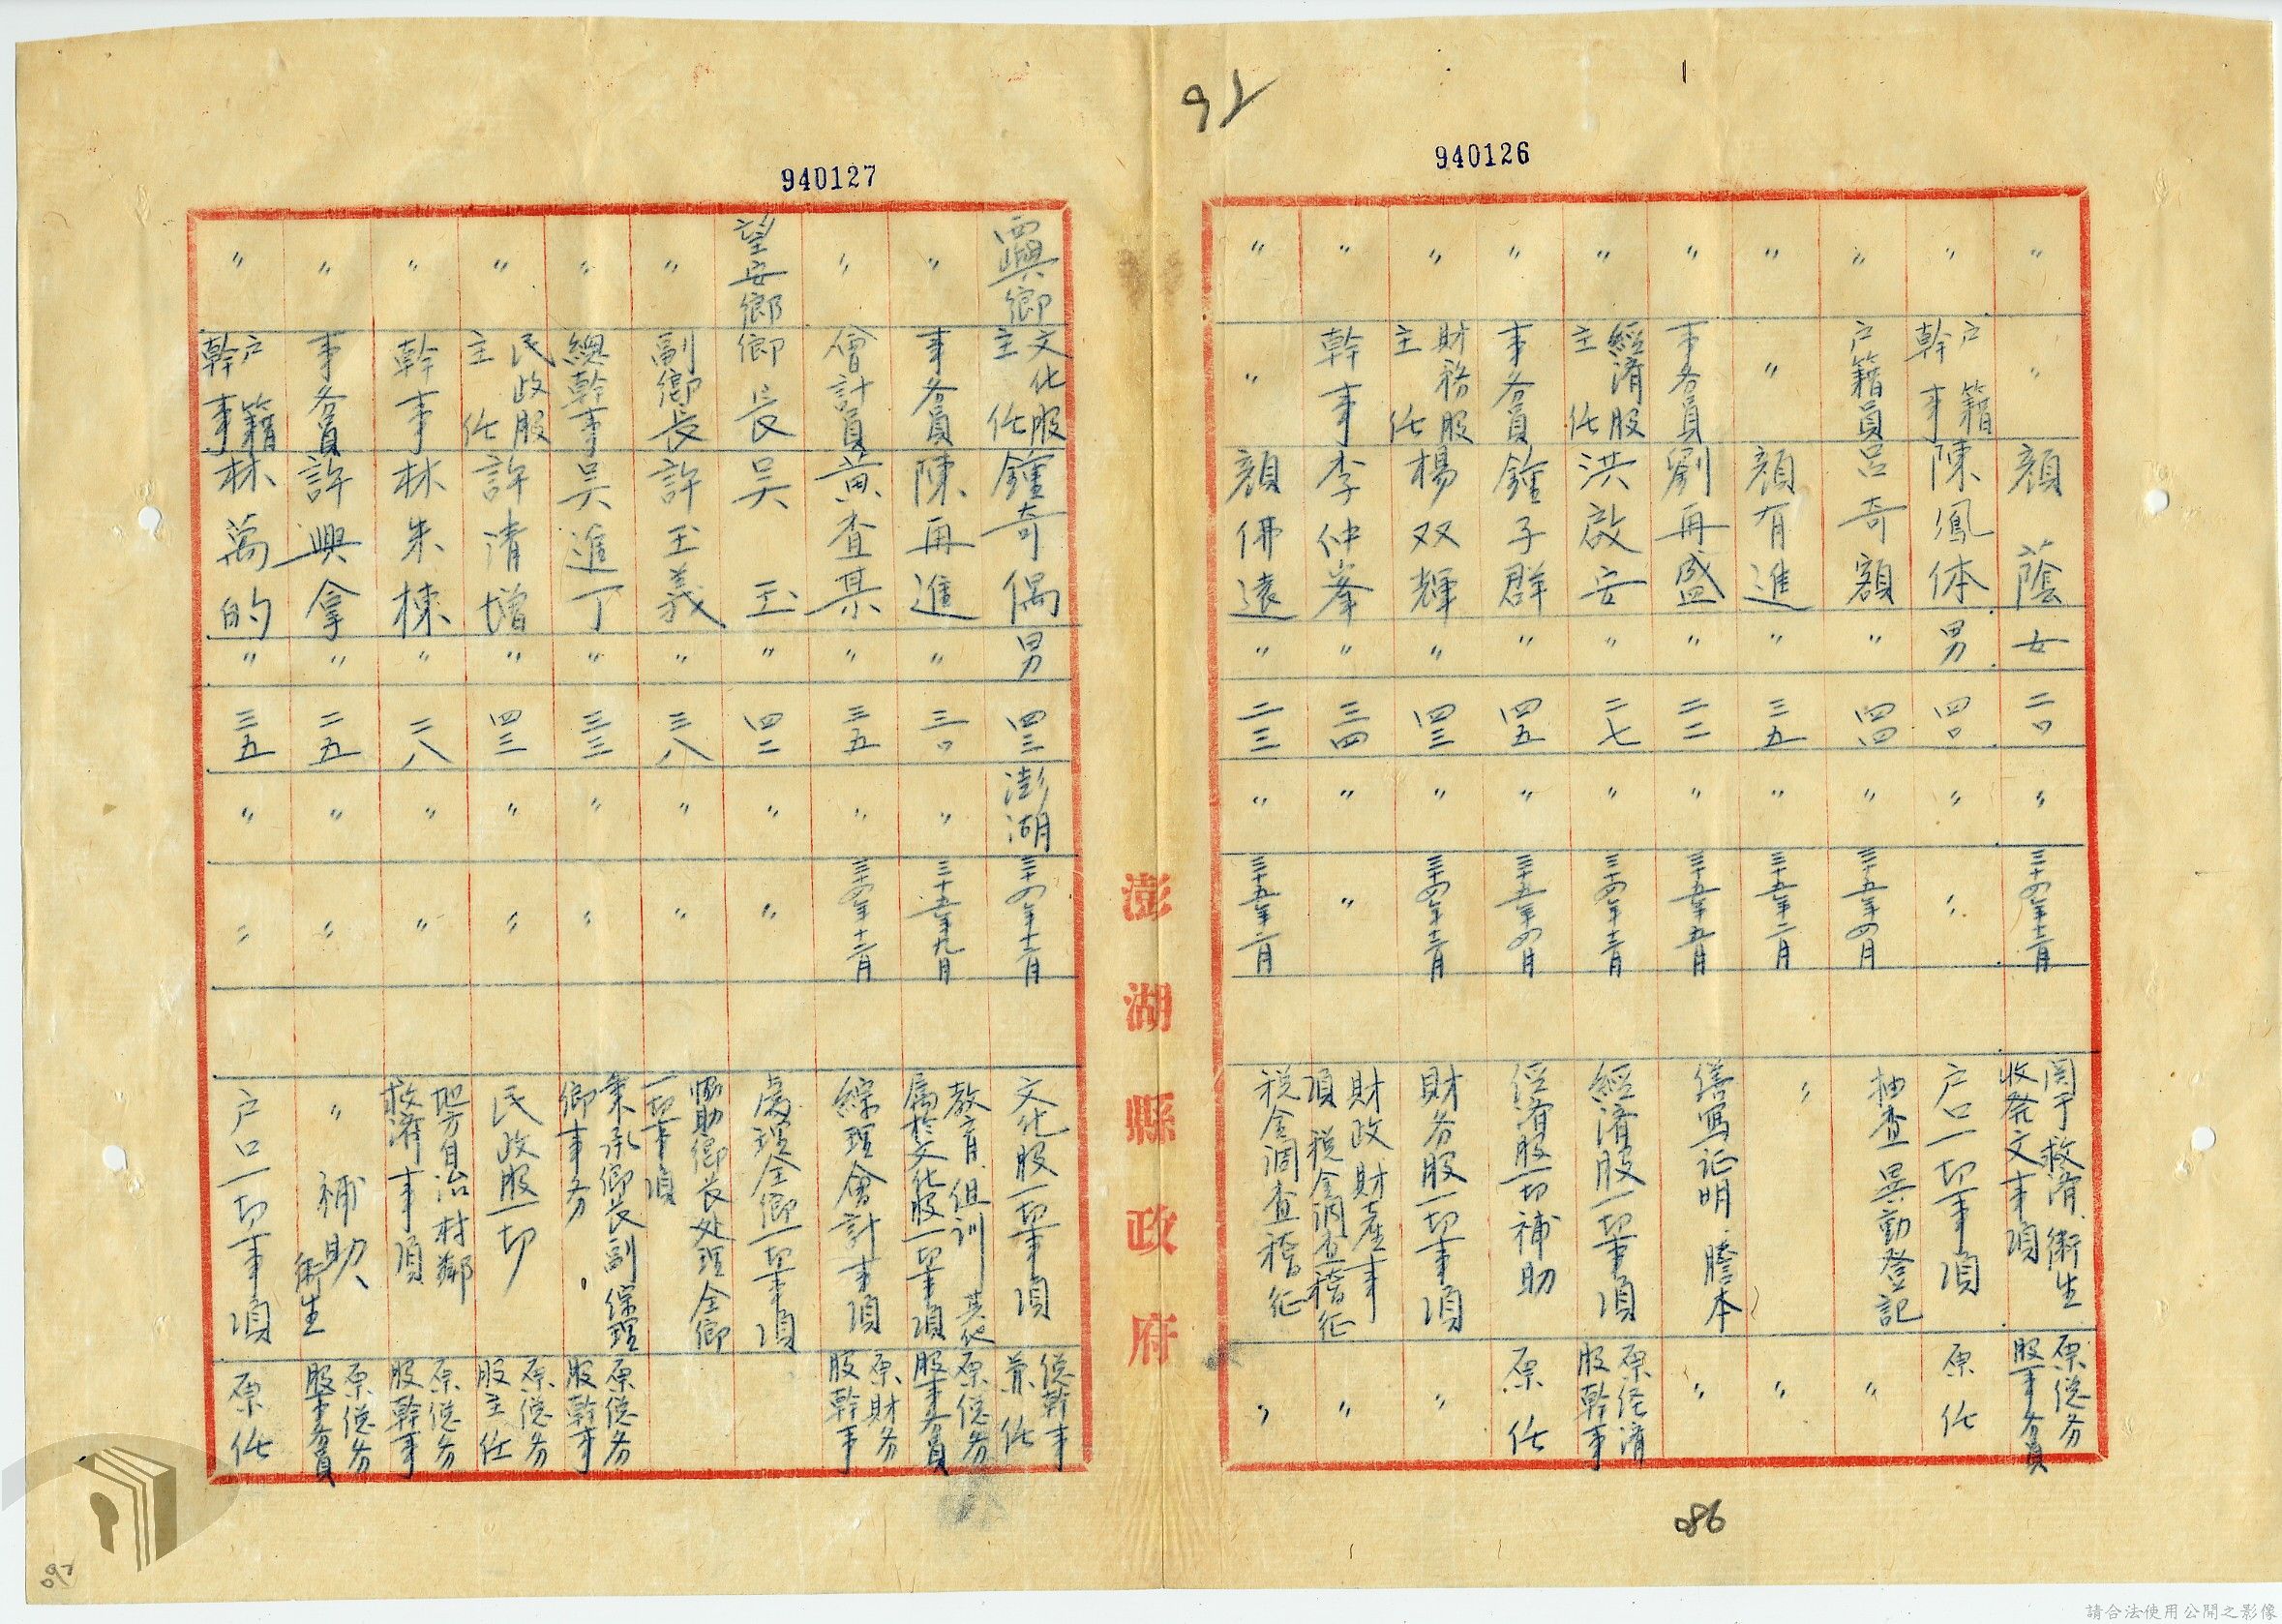 92
940126
〃 〃 顏蔭 女 二〇 〃 三十四年十二月 関于救済、衛生收發文事項 原總务股事务員
〃 戶籍幹事 陳鳳体 男 四〇 〃 〃 户口一切事項 原任
〃 户籍員 呂奇額 〃 四四 〃 三十五年四月 抽查異動登記 〃
〃 〃 顏有進 〃 三九 〃 三十五年二月 〃 〃
〃 事务員 劉再盛 〃 二二 〃 三十五年五月 缮寫证明、謄本 〃
〃 經濟股主任 洪啟安 〃 二七 〃 三十四年十二月 經濟股一切事項 原经濟股幹事
〃 事务員 鐘子群 〃 四五 〃 三十五年四月 经濟股一切補助 原任
〃 財務股主任 楊双輝 〃 四三 〃 三十四年十二月 財务股一切事項 〃
〃 幹事 李仲峯 〃 三四 〃 〃 財政財產事項 税金調查稽征 〃
〃 〃 顏佛遠 〃 二三 〃 三十五年二月 税金調查稽征 〃
086
澎湖縣政府
940127
西嶼鄉 文化股主任 鐘奇偶 男 四三 澎湖 三十四年十二月 文化股一切事項 總幹事兼任
〃 事务員 陳再進 〃 三〇 〃 三十五年九月 教育、组训其他属於文化股一切事項 原總务股事务員
〃 會計員 黄查某 〃 三五 〃 三十四年十二月 綜理會計事項 原財务股幹事
望安鄉 鄉長 吴玉 〃 四二 〃 〃 處理全鄉一切事項
〃 副鄉長 許玉義 〃 三八 〃 〃 協助鄉长处理全鄉一切事項
〃 總幹事 吴進丁 〃 三三 〃 〃 秉承鄉長副綜理鄉事务 原總务股幹事
〃 民政股主任 許清增 〃 四三 〃 〃 民政股一切 原總务股主任
〃 幹事 林朱棟 〃 二八 〃 〃 地方自治村鄰救濟事項 原總务股幹事
〃 事务員 許興拿 〃 二五 〃 〃 〃 補助、衛生 原總务股事务員
〃 户籍幹事 林萬的 〃 三五 〃 〃 户口一切事項 原任
092
請合法使用公開之影像